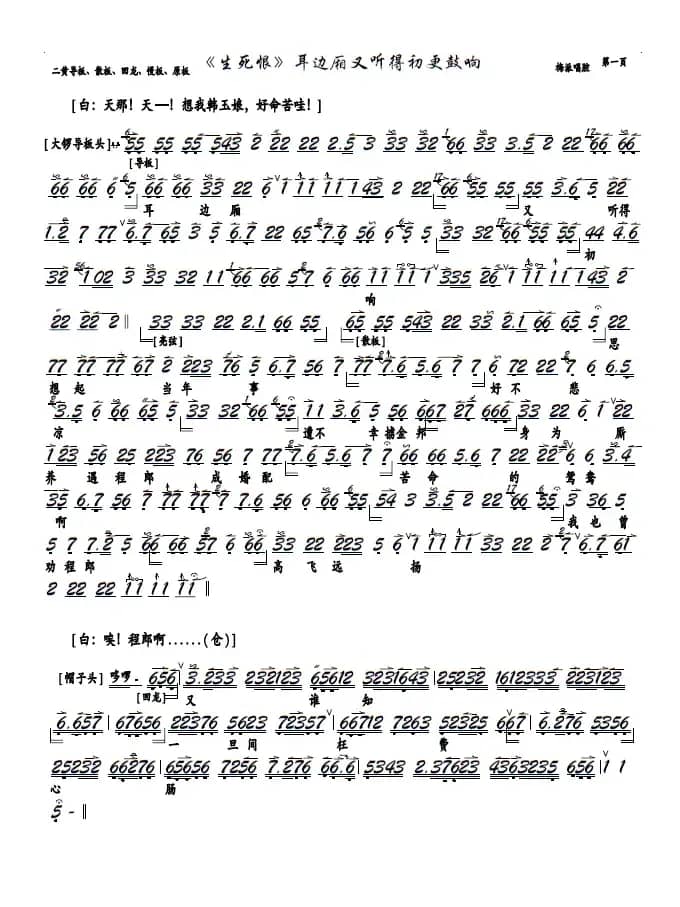 二黄导板、散板、回龙、慢板、原板 《生死恨》耳边厢又听得初更鼓响 梅派唱腔 第一页
[白：天那！天—！想我韩玉娘，好命苦哇！]
[大锣导板头] 55 55 5543 2 22 22 2.5 3 33 32 66 33 3.5 2 22 66 66
[导板]
66 66 6 5 66 66 33 22 6 1 11 11 143 2 22 66 55 55 3.6 5 22
耳 边 厢 又 听得
1.2 7 77 6.7 65 3 5 6.7 22 2.2 7.6 56 5. 33 33 66 55 55 44 4.6
初
32 102 3 33 32 11 66 66 57 6 66 11 11 1 335 26 1 11 11 143 2
响
22 22 2 33 33 22 2.1 66 55 65 55 543 22 22 2.1 66 65 5
[亮弦] [散板] 思
77 77 77 67 2 223 76 5 6.7 56 7 77 7.6 5.6 7 7 6 72 22 7 6.5
想 起 当 年 事 好 不 悲
3.5 6 66 65 5 33 22 66 55 11 3.6 5 56 667 27 666 33 22 6 1 22
凉 遭不 幸掳金 邦 身 为 厮
123 56 25 223 76 56 2.7 6.2 7 6 66 66 5.6 7 22 22 6 3.4
养 遇 程 郎 成 婚 配 苦 命 的 鸳 鸯
35 6.7 56 77 77 77 7.6 56 6 55 54 3 3.5 2 22 56 55 3 36 5
啊 我 也 曾
5 7 7.2 6 66 66 57 6 66 33 22 223 5 6 11 11 2 77 6.7 61
劝 程 郎 高 飞 远 扬
2 22 22 11 11 11
[白：唉！程郎啊......(仓)]
[帽子头] 哆啰 - 656 3.233 232123 65612 3231643 25232 1612333 223123
[回龙] 又 谁 知
6.657 67656 22376 5623 72357 66712 7263 52325 667 6.276 5356
一 旦 间 枉 费
25232 66276 65656 7256 7.276 66.6 5343 2.37623 4363235 656 1 1
心 肠
5 -